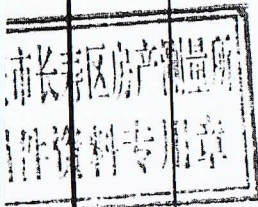 市长寿区房产测量所
件资料专用章